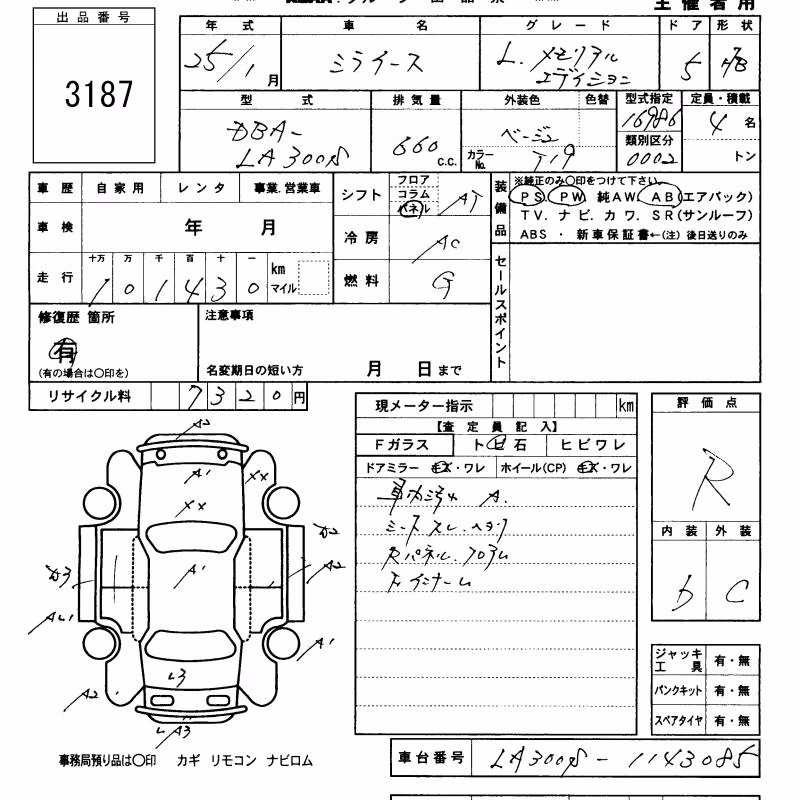 主催者用
出品番号 年式 車名 グレード ドア 形状
3187 25/1月 ミライース L. メモリアル エディション 5 HB
型式 排気量 外装色 色替 型式指定 定員・積載
DBA- LA300S 660 c.c. ベージュ カラーNo. T19 16986 類別区分 0002 4名 トン
車歴 自家用 レンタ 事業.営業車 シフト フロア コラム パネル AT
装備品 ※純正のみ○印をつけて下さい。
PS. PW 純AW. AB(エアバック)
TV. ナビ. カワ. SR(サンルーフ)
ABS ・ 新車保証書←(注) 後日送りのみ
車検 年 月 冷房 AC
走行 十万 万 千 百 十 一 km マイル 燃料 G
1 0 1 4 3 0
セールスポイント
修復歴 箇所 注意事項
有
(有の場合は○印を) 名変期日の短い方 月 日まで
リサイクル料 7 3 2 0 円
現メーター指示 km 評価点
【査定員記入】 R
Fガラス ト ビ 石 ヒビワレ
ドアミラー キズ・ワレ ホイール(CP) キズ・ワレ
車内汚れ A.
シート スレ.ヘタリ
Rパネル.フロアム
Fインナーム
内装 外装
b C
A2
A1 XX
XX
A1
A2
A1
A2
L3
A3
ジャッキ 工具 有・無
パンクキット 有・無
スペアタイヤ 有・無
事務局預り品は○印 カギ リモコン ナビロム
車台番号 LA300S-1143085